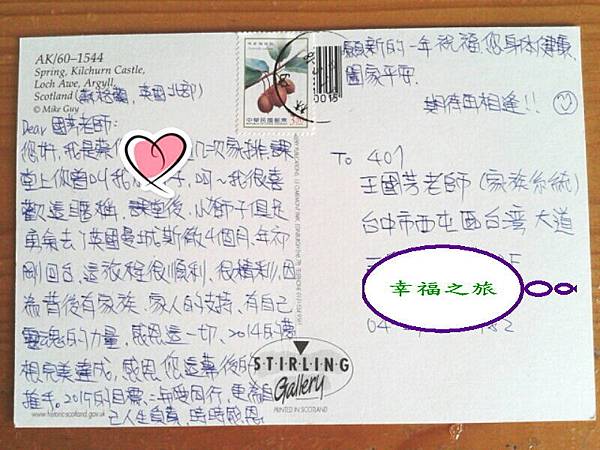 AK/60-1544
Spring, Kilchurn Castle,
Loch Awe, Argyll,
Scotland (蘇格蘭, 英國北部)
© Mike Guy
Dear 國芳老師:
您好, 我是 几次家排課
堂上你曾叫我 啊~我很喜
歡這暱稱, 課堂後, 小獅子俱足
勇氣去 英國 做4個月, 年初
剛回台, 這旅程很順利, 很精彩, 因
為背後有家族、家人的支持、有自己
靈魂的力量, 感恩這一切, 2014的夢
想完美達成, 感恩您這幕後的
推手。2015的目標: 與愛同行, 更為自
己人生負責, 時時感恩。
www.historic-scotland.gov.uk
中華民國郵票
0015
願新的一年祝福您身体健康,
闔家平安.
期待再相逢!!
To 407
王國芳老師 (家族系統)
台中市西屯區台灣大道
幸福之旅
04
STIRLING
Gallery
PRINTED IN SCOTLAND